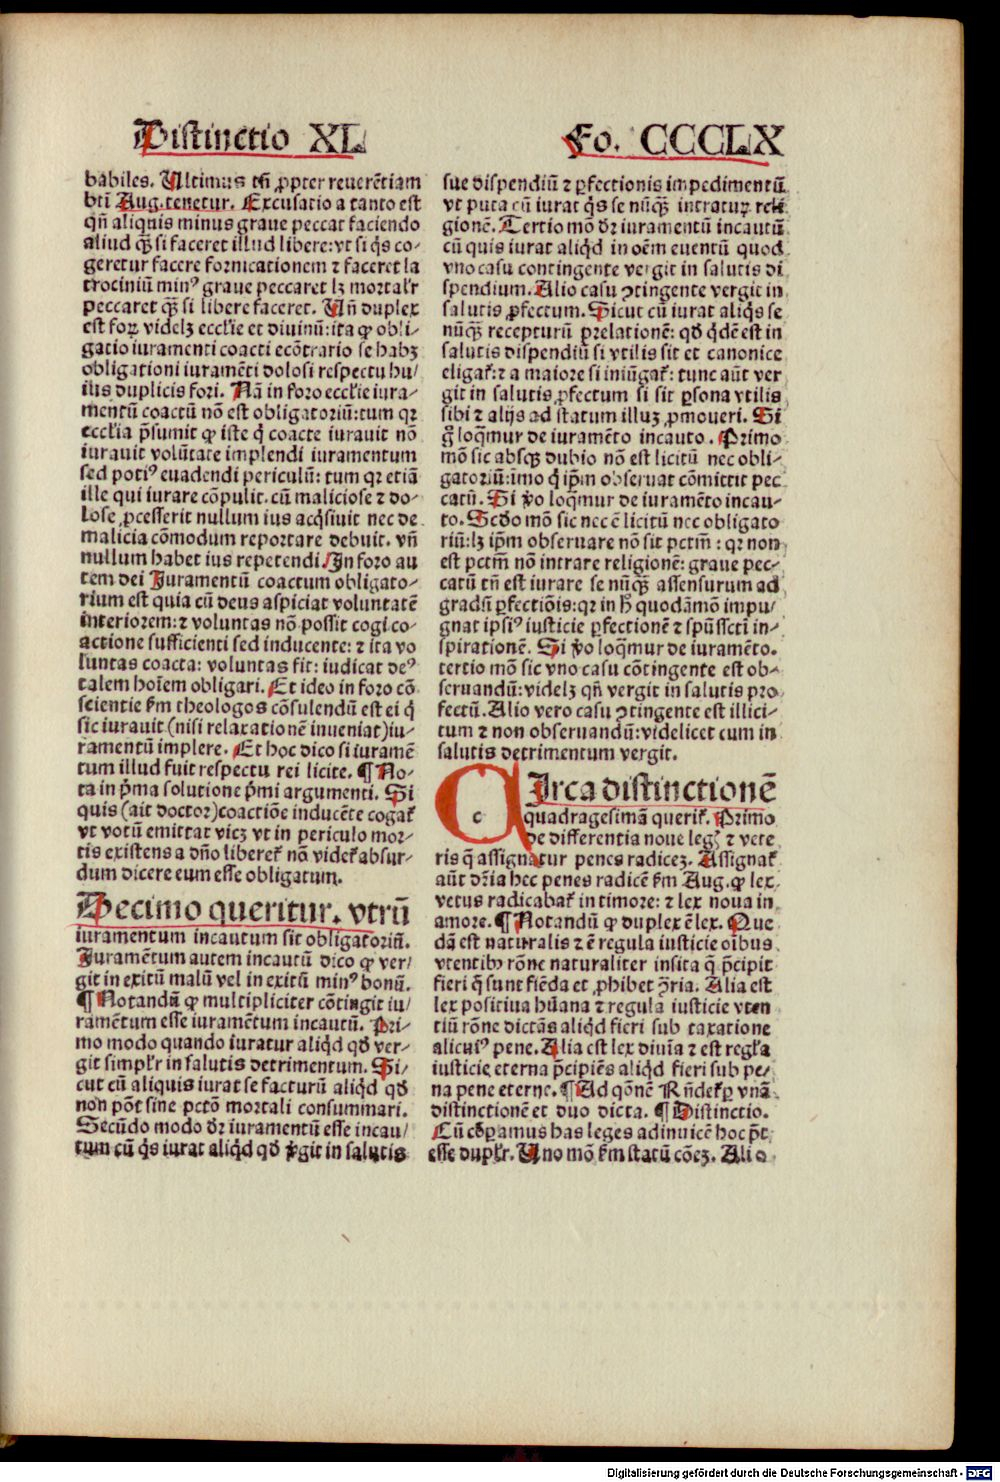 Distinctio XL
Fo. CCCLX
babiles. Ultimus tñ ꝓpter reuerẽtiam
bti Aug. tenetur. Excusatio a tanto est
qñ aliquis minus graue peccat faciendo
aliud qꝫ si faceret illud libere: vt si q̃s co-
geretur facere fornicationem ⁊ faceret la
trociniũ minꝰ graue peccaret lꝫ mortalr̃
peccaret qꝫ si libere faceret. Uñ duplex
est foꝝ videlꝫ eccl'ie et diuinũ: ita ꝙ obli-
gatio iuramenti coacti ecõtrario se habꝫ
obligationi iuramẽti dolosi respectu hu/
ius duplicis fori. Nã in foro eccl'ie iura-
mentũ coactũ nõ est obligatoriũ: tum qꝛ
eccl'ia p̃sumit ꝙ iste q̃ coacte iurauit nõ
iurauit volũtate implendi iuramentum
sed potiꝰ euadendi periculũ: tum qꝛ etiã
ille qui iurare cõpulit. cũ maliciose ⁊ do-
lose ꝓcesserit nullum ius acq̃siuit nec de
malicia cõmodum reportare debuit. vñ
nullum habet ius repetendi. In foro au
tem dei Iuramentũ coactum obligato-
rium est quia cũ deus aspiciat voluntatẽ
interiorem: ⁊ voluntas nõ possit cogi co-
actione sufficienti sed inducente: ⁊ ita vo
luntas coacta: voluntas fit: iudicat deꝰ
talem hoĩem obligari. Et ideo in foro cõ
scientie ẜm theologos cõsulendũ est ei q̃
sic iurauit (nisi relaxationẽ inueniat) iu-
ramentũ implere. Et hoc dico si iuramẽ
tum illud fuit respectu rei licite. ¶ No-
ta in p̃ma solutione p̃mi argumenti. Si
quis (ait doctor) coactiõe inducẽte cogat̃
vt votũ emittat vicꝫ vt in periculo mor-
tis existens a dño liberet̃ nõ videt̃ absur-
dum dicere eum esse obligatum.
Decimo queritur. vtrũ
iuramentum incautum sit obligatoriũ.
Iuramẽtum autem incautũ dico ꝙ ver/
git in exitũ malũ vel in exitũ minꝰ bonũ.
¶ Notandũ ꝙ multipliciter cõtingit iu/
ramẽtum esse iuramẽtum incautũ. Pri-
mo modo quando iuratur aliq̃d qď ver-
git simplr̃ in salutis detrimentum. Si/
cut cũ aliquis iurat se facturũ aliq̃d qď
non põt sine pctõ mortali consummari.
Secũdo modo dr̃ iuramentũ esse incau/
tum cũ q̃s iurat aliq̃d qď v̾git in salutis
sue dispendiũ ⁊ ꝑfectionis impedimentũ
vt puta cũ iurat q̃s se nũqꝫ intraturꝫ reli
gionẽ. Tertio mõ dr̃ iuramentũ incautũ
cũ quis iurat aliq̃d in oẽm euentũ quod
vno casu contingente vergit in salutis di
spendium. Alio casu ꝯtingente vergit in
salutis ꝓfectum. Sicut cũ iurat aliq̃s se
nũqꝫ recepturũ prelationẽ: qď q̃dẽ est in
salutis dispendiũ si vtilis sit et canonice
eligat̃: ⁊ a maiore si iniũgat̃: tunc aũt ver
git in salutis ꝓfectum si sit ꝑsona vtilis
sibi ⁊ alijs ad statum illuꝫ ꝓmoueri. Si
g̃ loq̃mur de iuramẽto incauto. Primo
mõ sic absqꝫ dubio nõ est licitũ nec obli-
gatoriũ: imo q̃ ip̃m obseruat cõmittit pec
catũ. Si v̾o loq̃mur de iuramẽto incau-
to. Scďo mõ sic nec ẽ licitũ nec obligato
riũ: lꝫ ip̃m obseruare nõ sit pctm̃: qꝛ non
est pctm̃ nõ intrare religionẽ: graue pec-
catũ tñ est iurare se nũqꝫ assensurum ad
gradũ ꝑfectiõis: qꝛ in h̃ quodãmõ impu/
gnat ipsiꝰ iusticie ꝑfectionẽ ⁊ spũssctĩ in-
spirationẽ. Si v̾o loq̃mur de iuramẽto.
tertio mõ sic vno casu cõtingente est ob-
seruandũ: videlꝫ qñ vergit in salutis pro
fectũ. Alio vero casu ꝯtingente est illici-
tum ⁊ non obseruandũ: videlicet cum in
salutis detrimentum vergit.
c
CIrca distinctionẽ
quadragesimã querit̃. Primo
de differentia noue leg̃ ⁊ vete
ris q̃ assignatur penes radiceꝫ. Assignat̃
aũt dr̃ia hec penes radicẽ ẜm Aug. ꝙ lex
vetus radicabat̃ in timore: ⁊ lex noua in
amore. ¶ Notandũ ꝙ duplex ẽ lex. Que
dã est naturalis ⁊ ẽ regula iusticie oĩbus
vtentibꝫ rõne naturaliter insita q̃ p̃cipit
fieri q̃ sunt fiẽda et ꝓhibet ꝯ̃ria. Alia est
lex positiua hũana ⁊ regula iusticie vten
tiũ rõne dictãs aliq̃d fieri sub taxatione
alicuiꝰ pene. Alia est lex diuĩa ⁊ est regl'a
iusticie eterna p̃cipiẽs aliq̃d fieri sub pe/
na pene eterne. ¶ Ad qõnẽ Rñdet̃ ꝑ vnã
distinctionẽ et duo dicta. ¶ Distinctio.
Cũ cõꝑamus has leges adinuicẽ hoc p̃t
esse duplr̃. Uno mõ ẜm statũ cõeꝫ. Alio
Digitalisierung gefördert durch die Deutsche Forschungsgemeinschaft - DFG